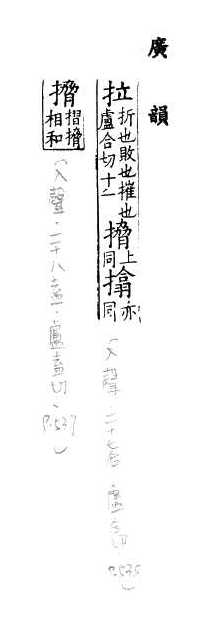 廣韻
拉折也敗也摧也盧合切十二㩉上同搚亦同
(入聲.二十七合 盧合切 P.535)
㩉摺㩉相和
(入聲.二十八盍.盧盍切、P.537)